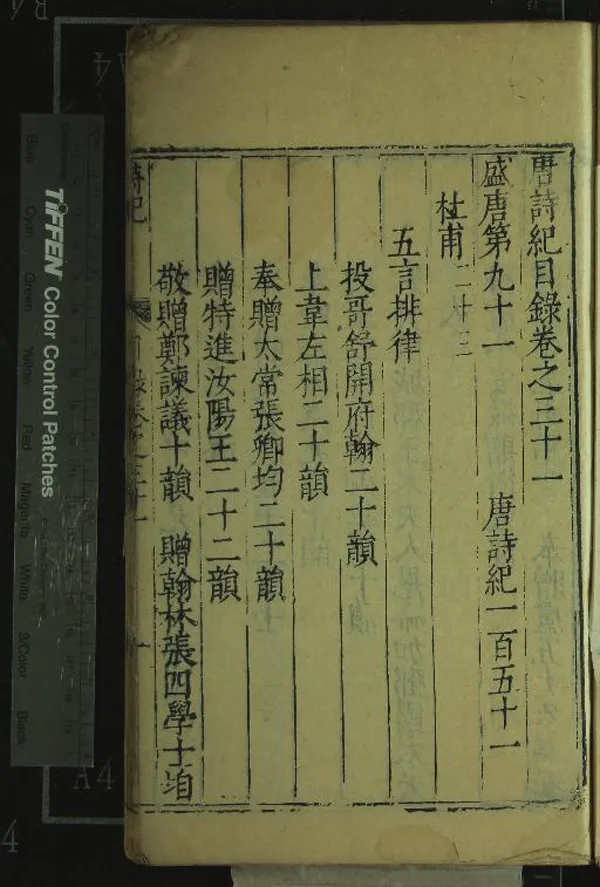 唐詩紀目錄卷之三十一
盛唐第九十一 唐詩紀一百五十一
杜甫二十三
五言排律
投哥舒開府翰二十韻
上韋左相二十韻
奉贈太常張卿均二十韻
贈特進汝陽王二十二韻
敬贈鄭諫議十韻 贈翰林張四學士垍
TIFFEN Color Control Patches
Blue
Cyan
Green
Yellow
Red
Magenta
White
3/Color
Black
A4
A4